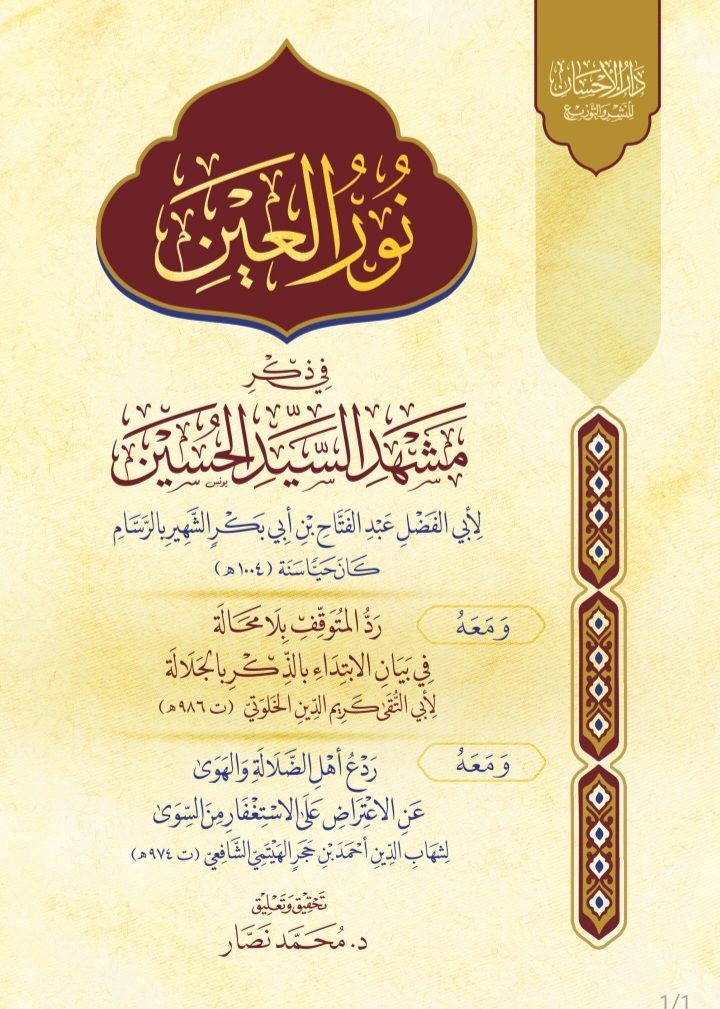 دَارُ الإِحْسَان
لِلنَّشِرِ وَالتَّوْزِيع
نُورُ العَيْنِ
فِي ذِكْرِ
مَشْهَدِ السَّيِّدِ الحُسَيْنِ
يونس
لِأَبِي الفَضْلِ عَبْدِ الفَتَّاحِ بْنِ أَبِي بَكْرٍ الشَّهِيرِ بِالرَّسَّامِ
كَانَ حَيًّا سَنَة (١٠٠٤ هـ)
وَمَعَهُ رَدُّ المُتَوَقِّفِ بِلَا مَحَالَة
فِي بَيَانِ الابْتِدَاءِ بِالذِّكْرِ بِالجَلَالَة
لِأَبِي التُّقَى كَرِيمِ الدِّينِ الخَلْوَتِيّ (ت ٩٨٦ هـ)
وَمَعَهُ رَدْعُ أَهْلِ الضَّلَالَةِ وَالهَوَى
عَنِ الاعْتِرَاضِ عَلَى الاسْتِغْفَارِ مِنَ السِّوَى
لِشِهَابِ الدِّينِ أَحْمَدَ بْنِ حَجَرٍ الهَيْتَمِيّ الشَّافِعِيّ (ت ٩٧٤ هـ)
تَحْقِيق وَتَعْلِيق
د. مُحَمَّد نَصَّار
1/1